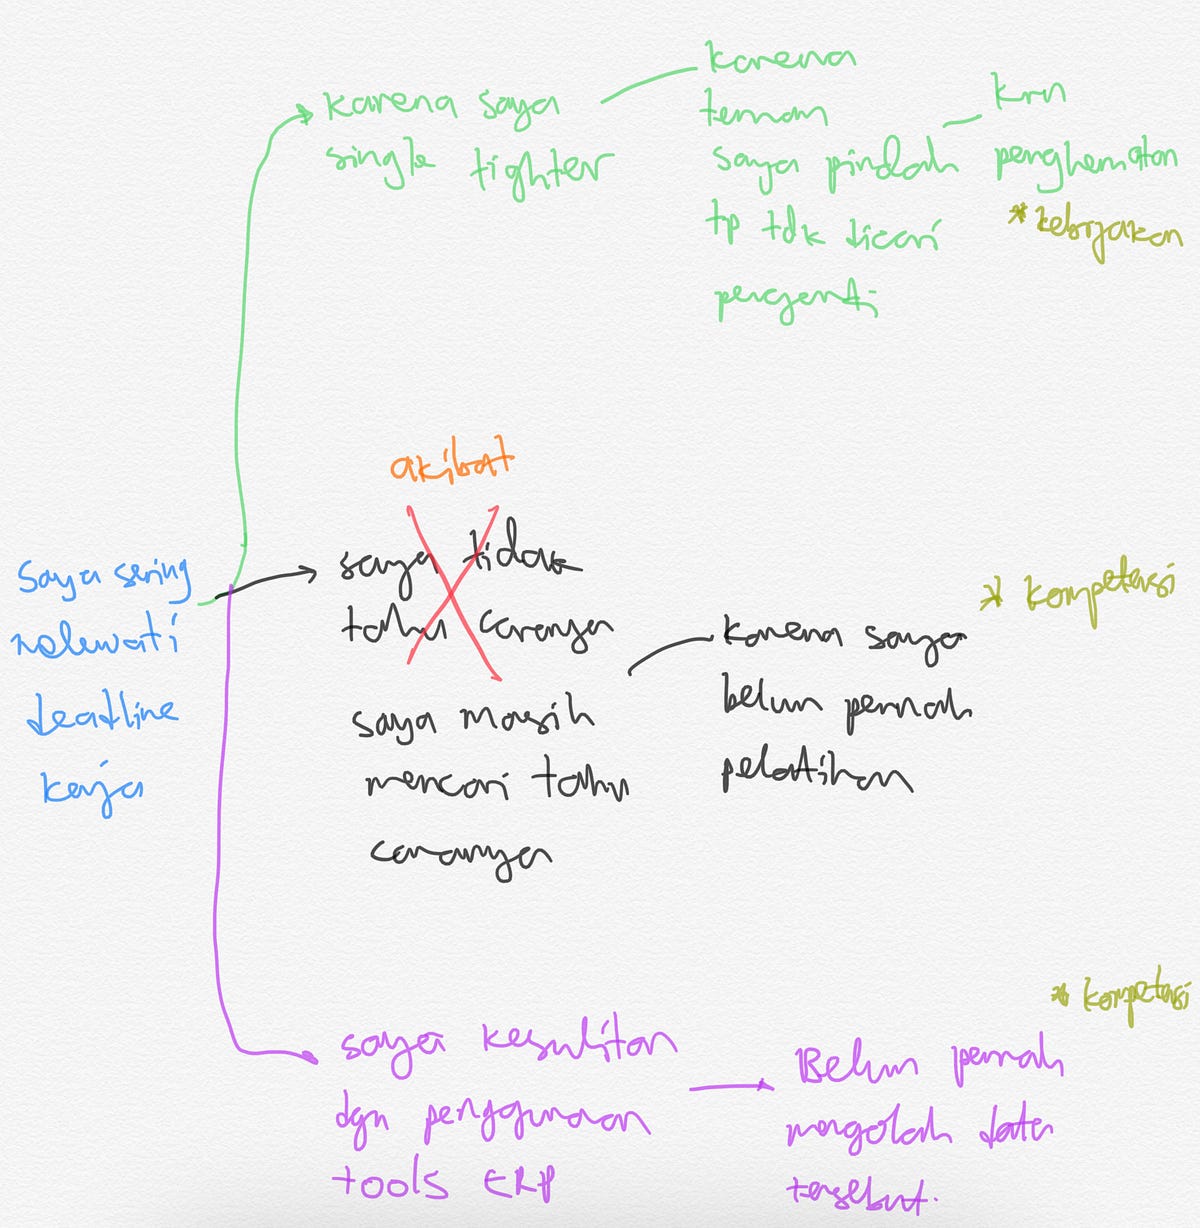 karena saya
single fighter
karena
teman
saya pindah
tp tdk dicari
pengganti
krn
penghematan
* kebijakan
akibat
Saya sering
melewati
deadline
kerja
saya tidak
tahu caranya
saya masih
mencari tahu
caranya
karena saya
belum pernah
pelatihan
* kompetensi
saya kesulitan
dgn penggunaan
tools ERP
* kompetensi
Belum pernah
mengolah data
tersebut.